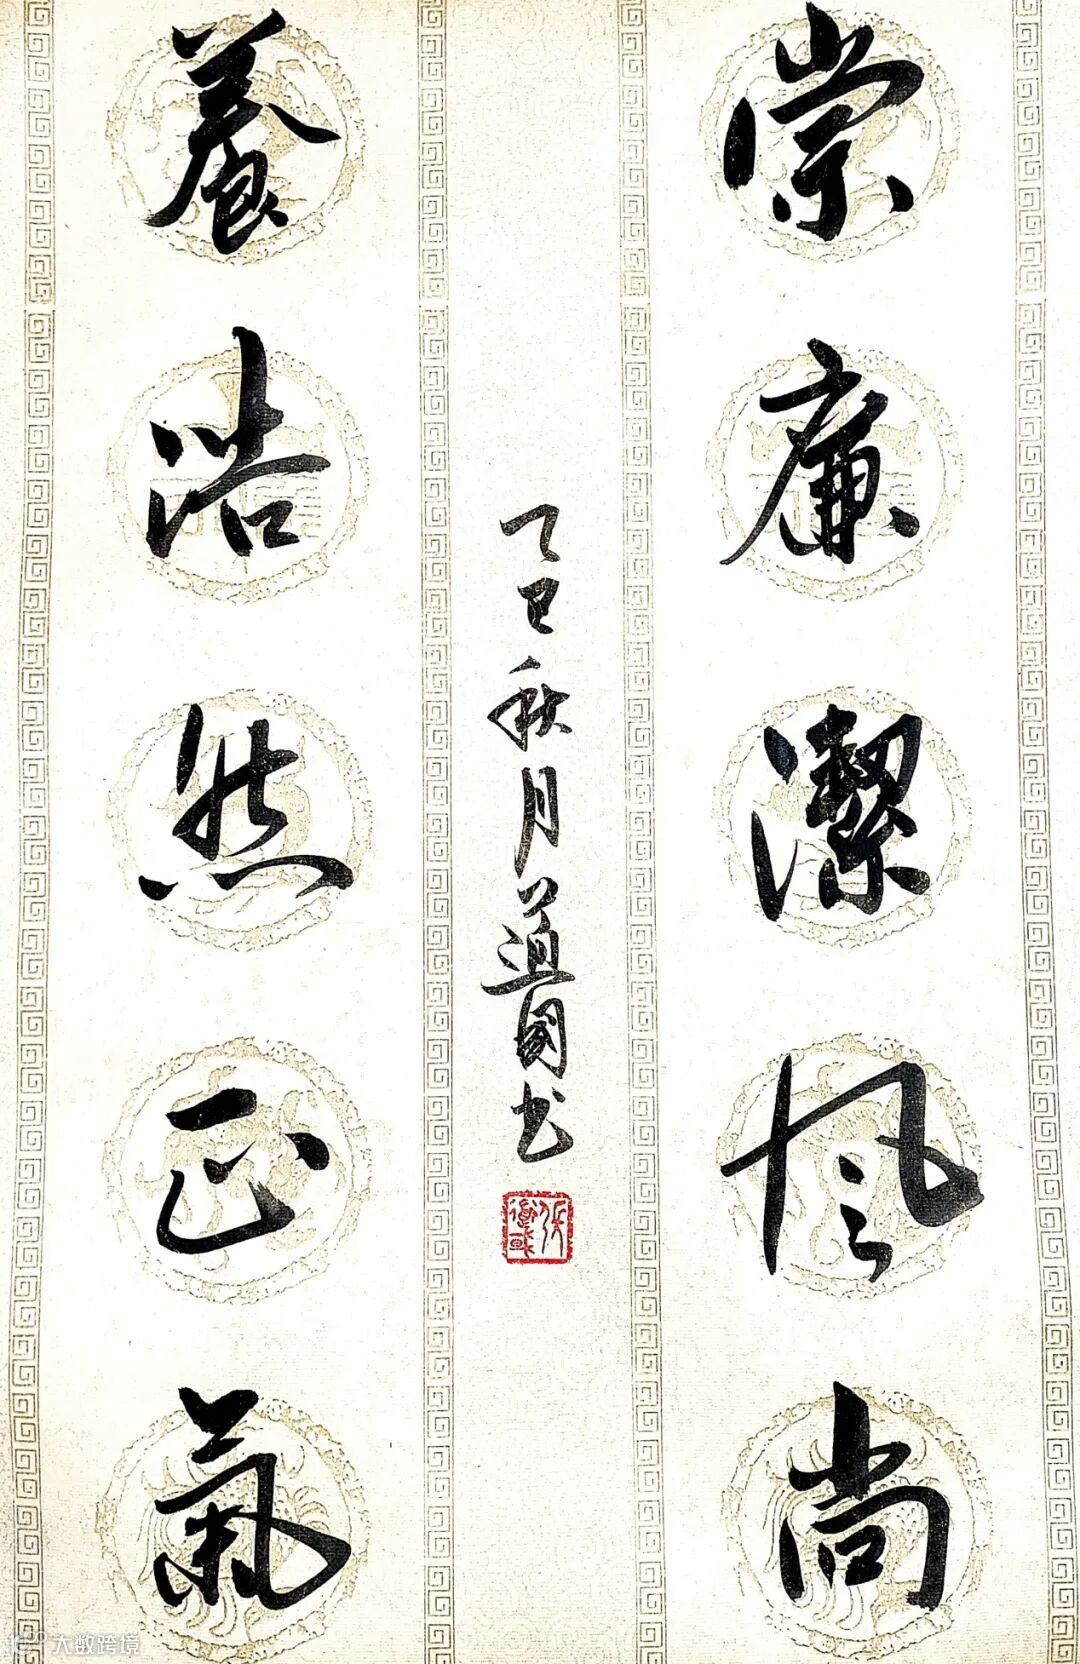 崇廉潔風尚
養浩然正氣
乙巳秋月道國书
大数跨境